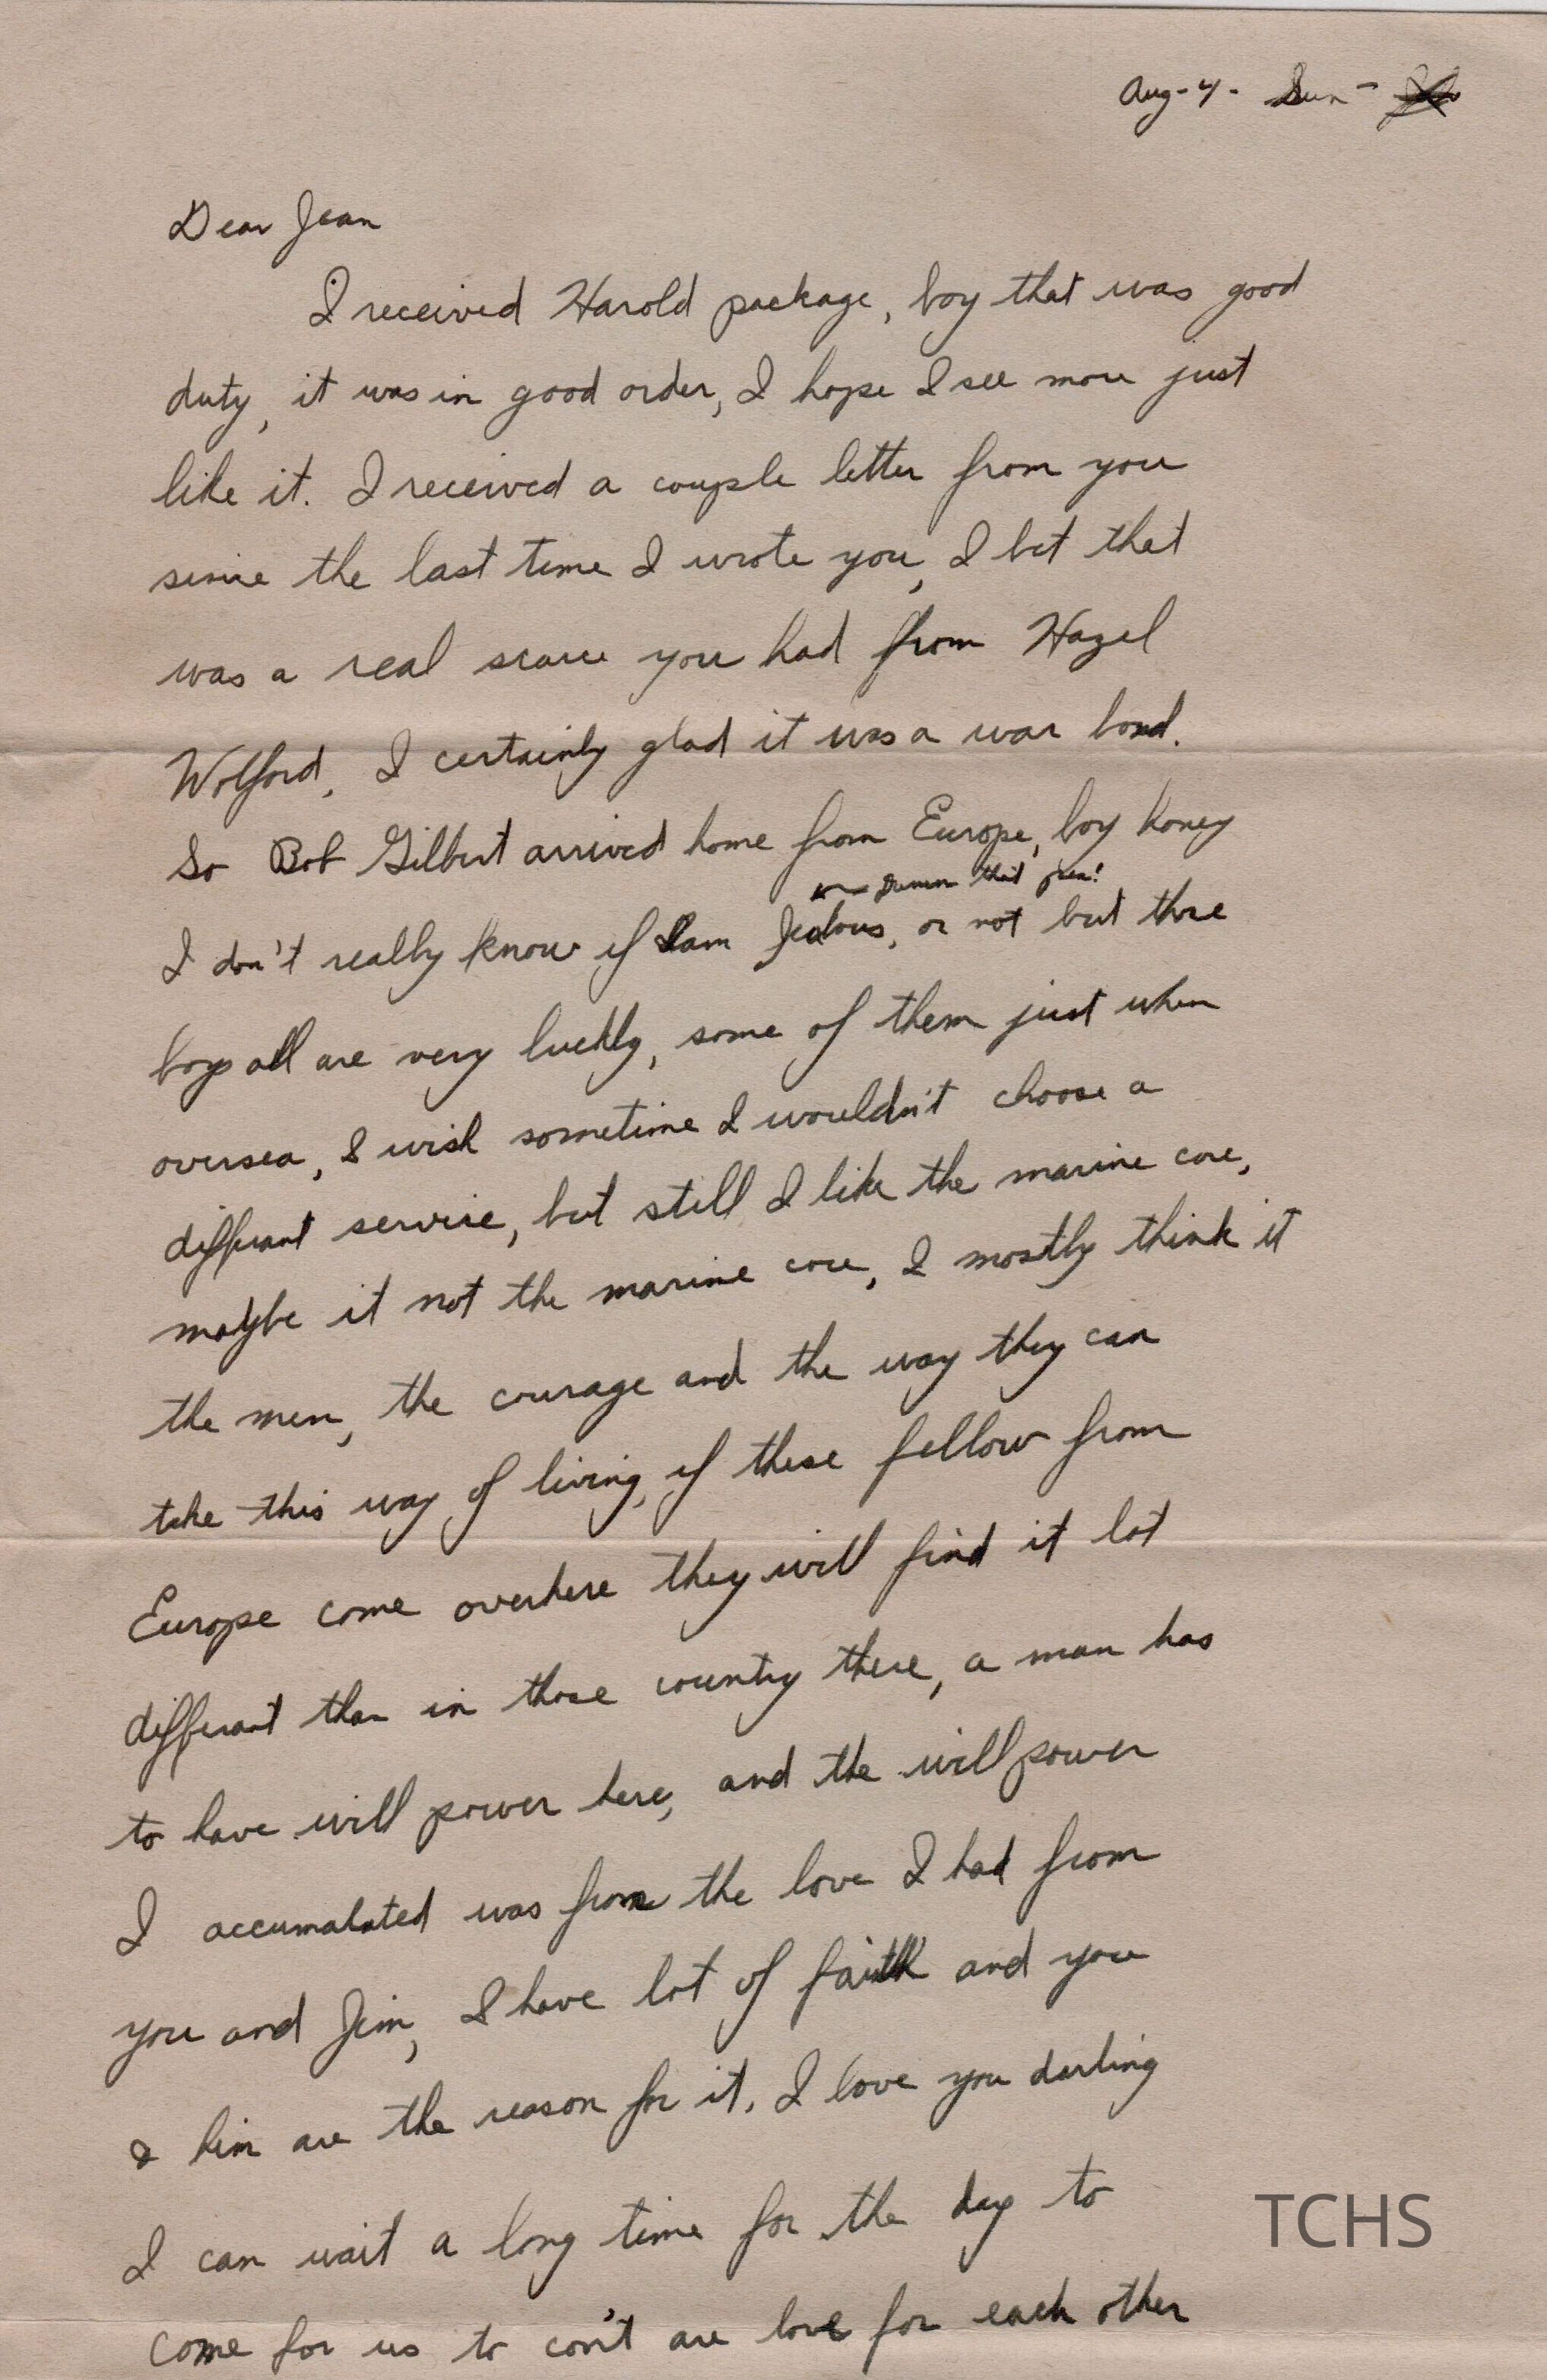 Aug-4- Sun-
Dear Jean
I received Harold package, boy that was good
duty, it was in good order, I hope I see more just
like it. I received a couple letter from you
since the last time I wrote you, I bet that
was a real scare you had from Hazel
Wolford, I certainly glad it was a war bond.
So Bob Gilbert arrived home from Europe, boy honey
Damn that pen!
I don't really know if I am Jealous, or not but those
boys all are very luckly, some of them just when
oversea, I wish sometime I wouldn't choose a
differant service, but still I like the marine core,
maybe it not the marine core, I mostly think it
the men, the courage and the way they can
take this way of living, if these fellow from
Europe come overhere they will find it lot
differant than in those country there, a man has
to have will power here, and the will power
I accumalated was from the love I had from
you and Jim, I have lot of faith and you
& him are the reason for it. I love you darling
I can wait a long time for the day to
come for us to con't are love for each other
TCHS